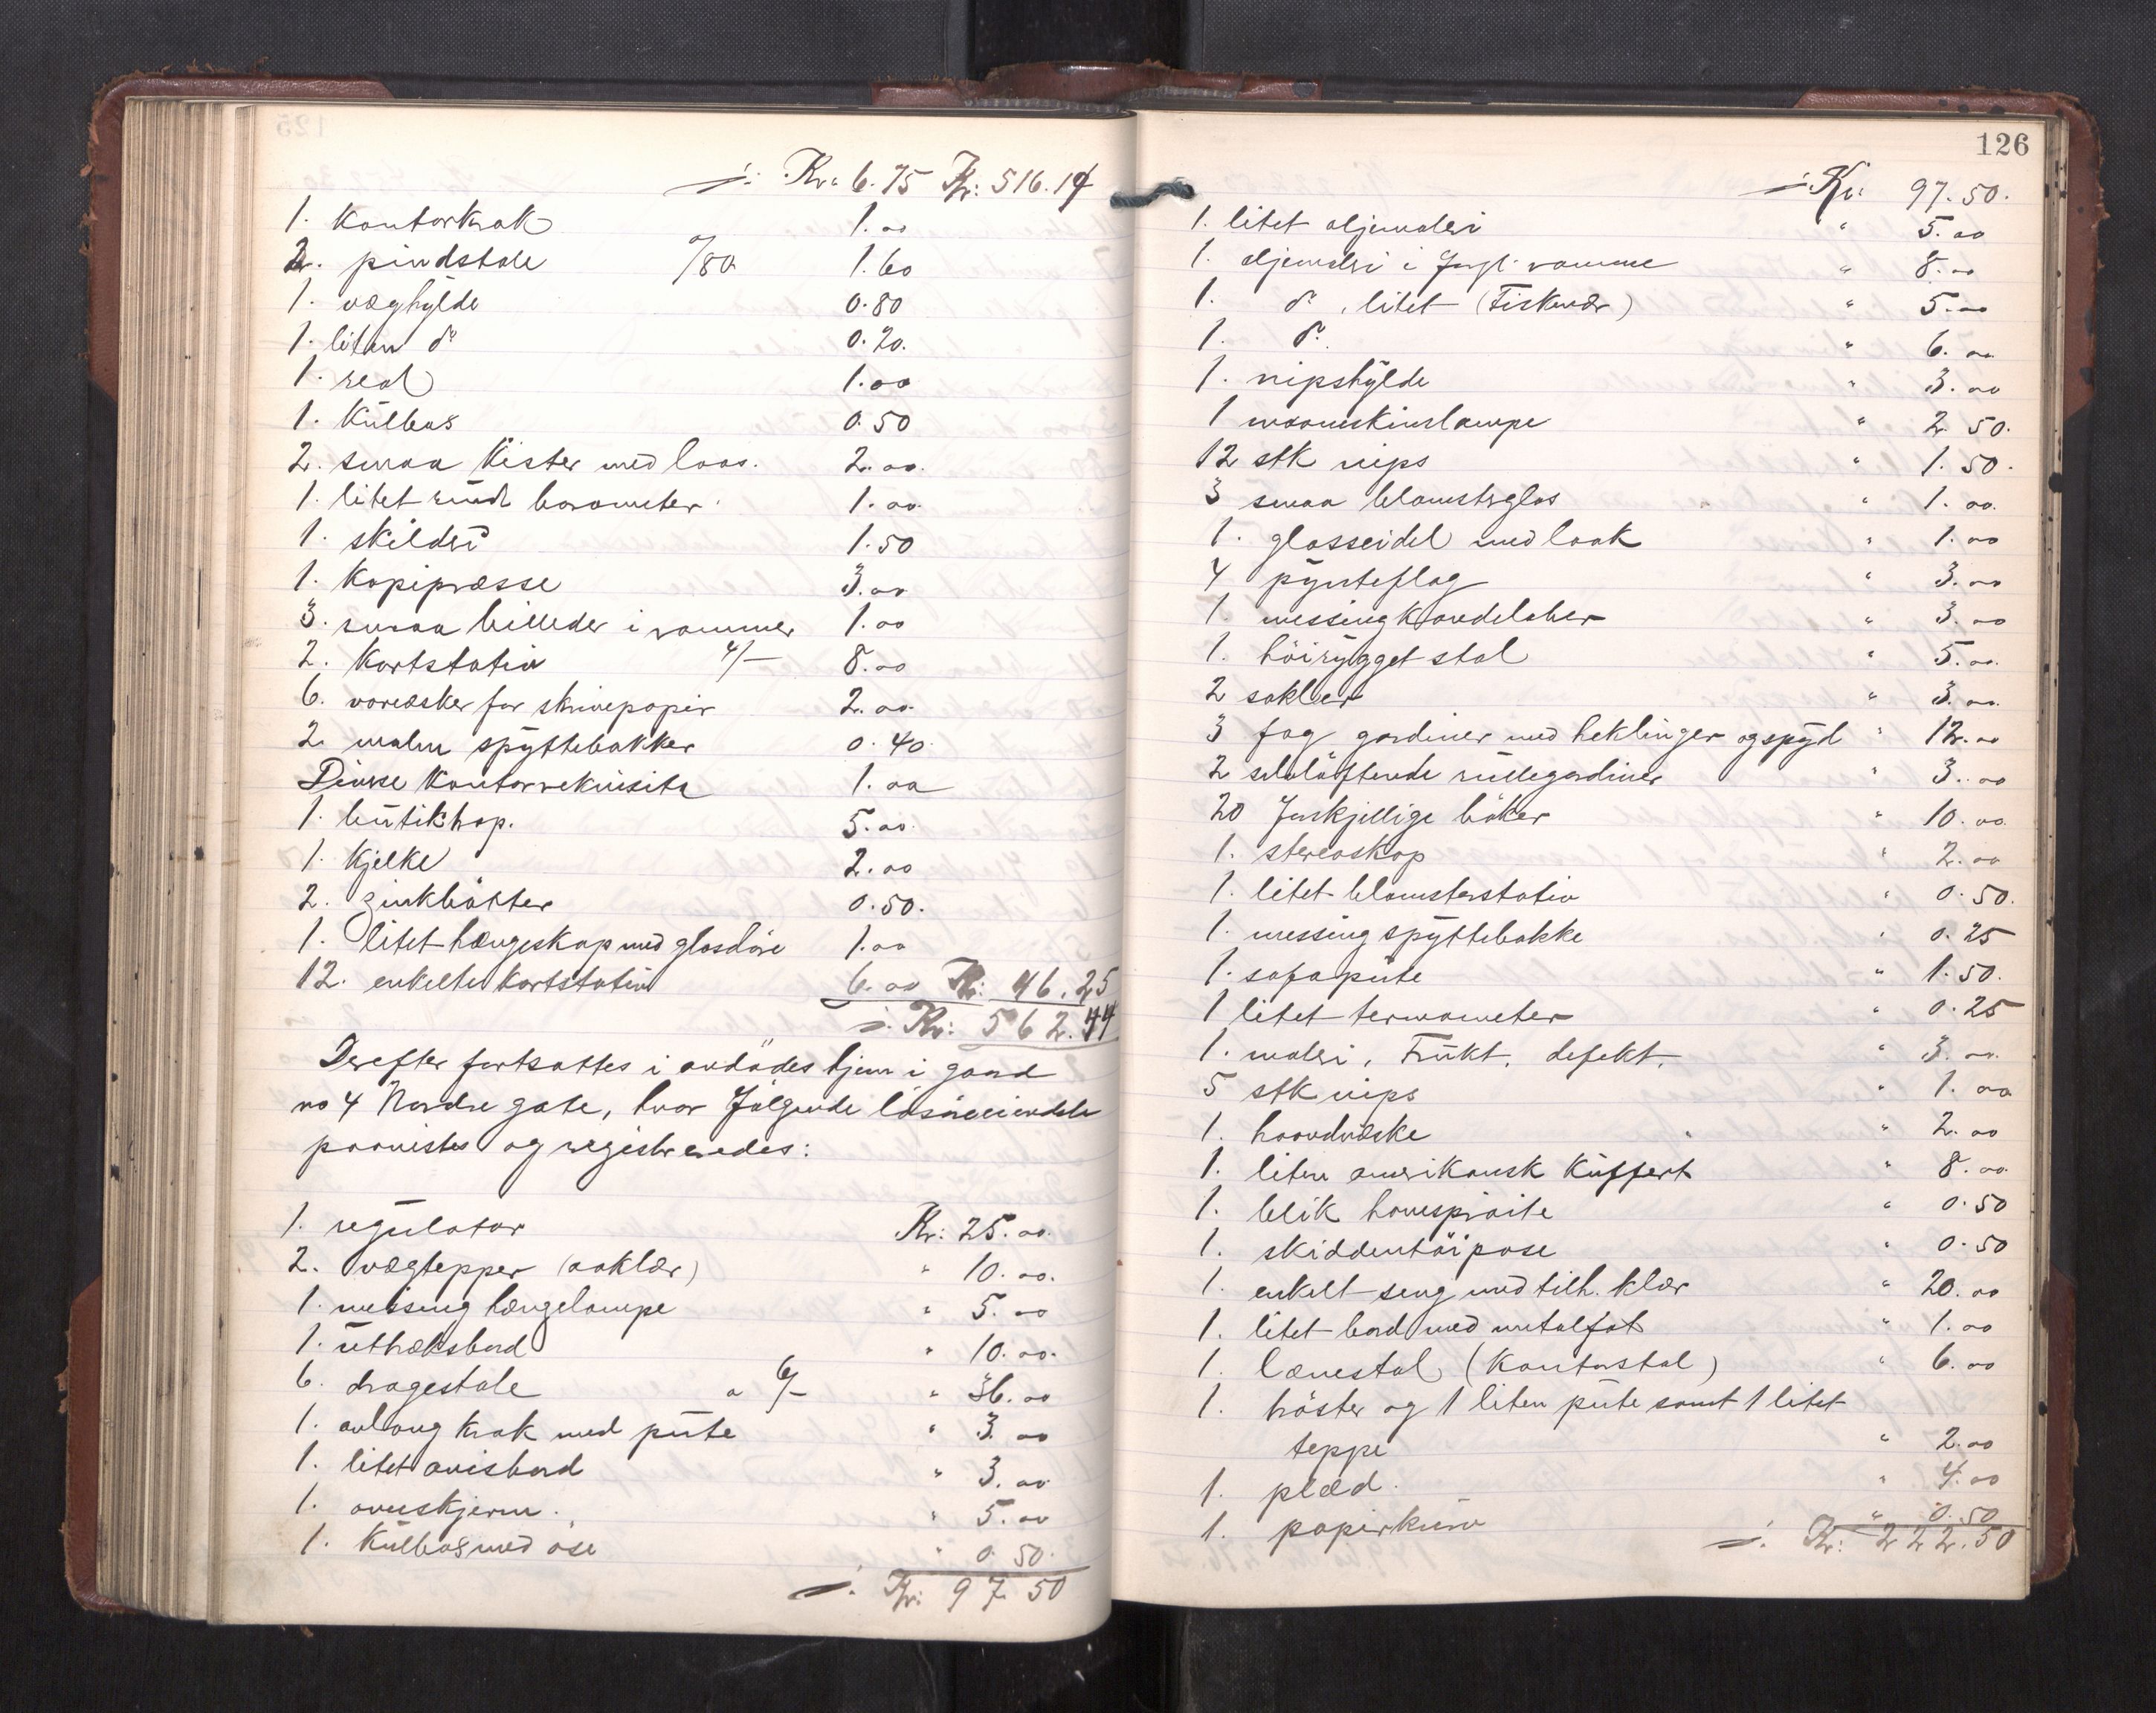 ÷ Kr: 6.75 Kr: 516.19
1. Kontorkrak 1.00
2. pindstole a/80 1.60
1. væghylde 0.80
1. liten do 0.20.
1. reol 1.00
1. Külboks 0.50
2. smaa Kister med laas. 2.00.
1. litet rundt barometer 1.00
1. skilderi 1.50
1. Kopipresse 3.00
3. smaa billeder i rammer 1.00
2. Kortstativ 4/- 8.00
6. voreæsker for skrivepapir 2.00
2 malm spyttebakker 0.40
Diverse Kontorrekvisita 1.00
1. butiktrap. 5.00
1. Kjelke 2.00
2. zinkbøtter 0.50.
1. litet hængeskap med glasdøre 1.00
12. enkelte Kortstativ 6.00 Kr: 46.25
÷ Kr: 562.44
Derefter fortsattes i avdødes hjem i gaard
no 4 Nordre gate, hvor følgende løsøreiendele
paavistes og registreredes:
1. regulator Kr: 25.00.
2. vægtepper (aaklær) " 10.00.
1. messing hængelampe " 5.00
1. uttræksbord " 10.00.
6. dragestole a 6/- " 36.00
1. avlang krak med pute " 3.00
1. litet avisbord " 3.00
1. ovnskjerm. " 5.00
1. Kulboks med øse " 0.50.
÷ Kr: 97.50
126
÷ Kr: 97.50.
1. litet oljemaleri " 5.00
1. oljemaleri i forgt. ramme " 8.00
1. do, litet (Fiskevær) " 5.00
1. do. " 6.00
1. nipshylde " 3.00
1 maaneskinslampe " 2.50.
12 stk nips " 1.50.
3 smaa blomsterglas " 1.00.
1. glasseidel med laak " 1.00
4 pynteflag " 3.00
1. messing Kandelaber " 3.00
1. høirygget stol " 5.00.
2 sokler " 3.00.
3 fag gardiner med heklinger og spyd " 12.00
2 selvløftende rullegardiner " 3.00
20 forskjellige bøker " 10.00.
1. stereoskop " 2.00
1. litet blomsterstativ " 0.50.
1. messing spyttebakke " 0.25
1. sofapute " 1.50.
1 litet termometer " 0.25
1. maleri, Frukt, defekt. " 3.00.
5 stk nips " 1.00
1. haandvæske " 2.00
1. liten amerikansk Kuffert " 8.00.
1. blik havesprøite " 0.50
1. skiddentøipose " 0.50
1. enkelt seng med tilh. klær " 20.00
1. litet bord med metalfat " 1.00
1. lænestol (Kontorstol) " 6.00
1. trøster og 1 liten pute samt 1 litet
teppe " 2.00
1. plæd. " 4.00
1. papirkurv " 0.50
÷ Kr: 222.50